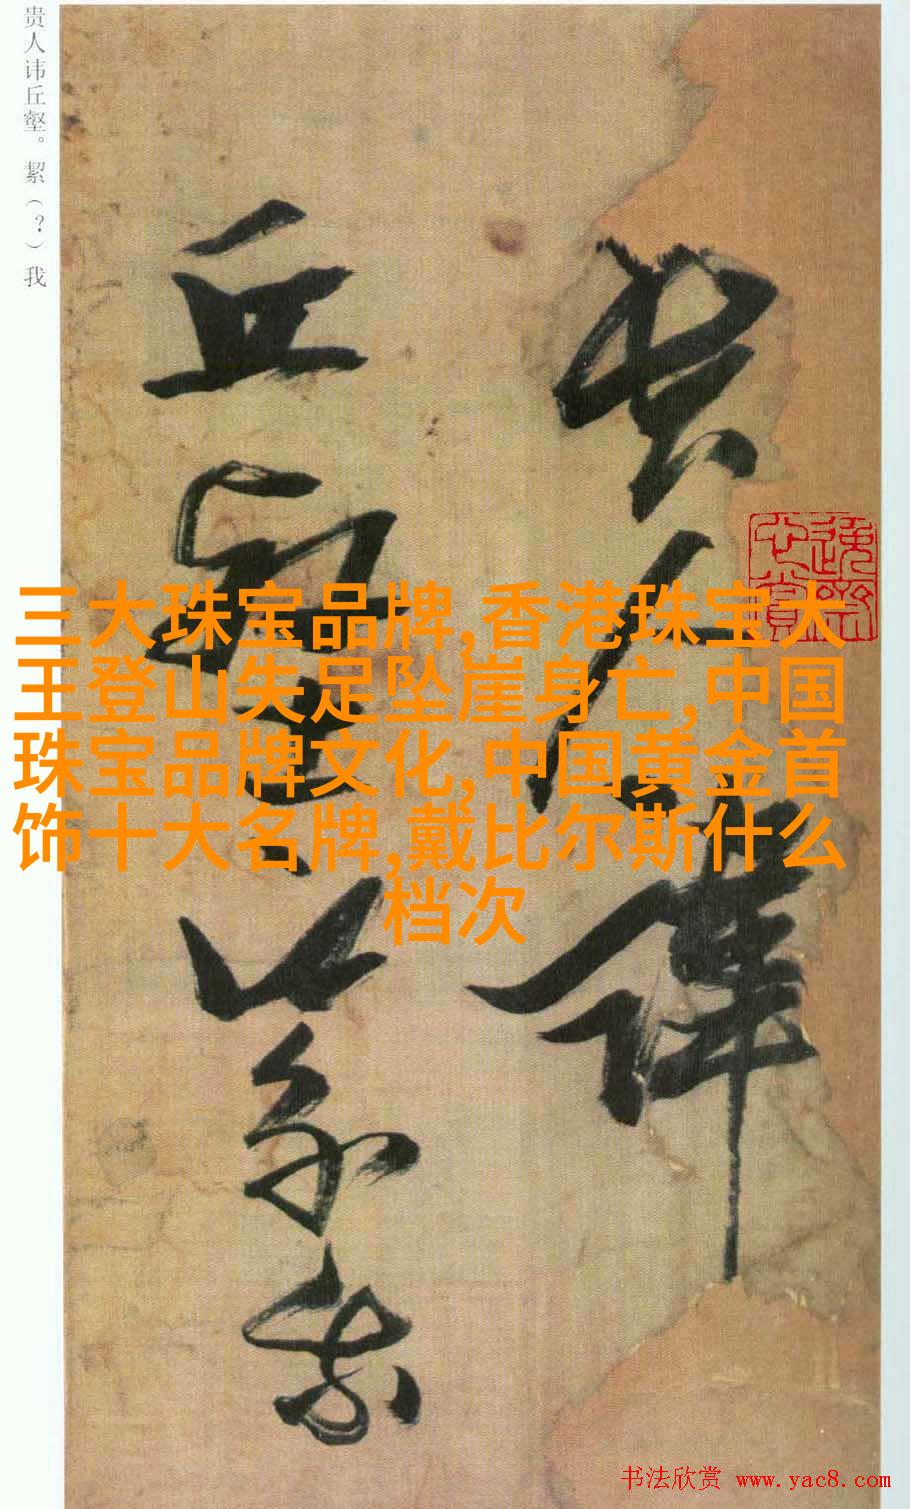 贵人讳丘壑。絜（？）我
贵人讳
丘壑以絜我
三大珠宝品牌,香港珠宝大
王登山失足坠崖身亡,中国
珠宝品牌文化,中国黄金首
饰十大名牌,戴比尔斯什么
档次
书法欣赏 www.yac8.com